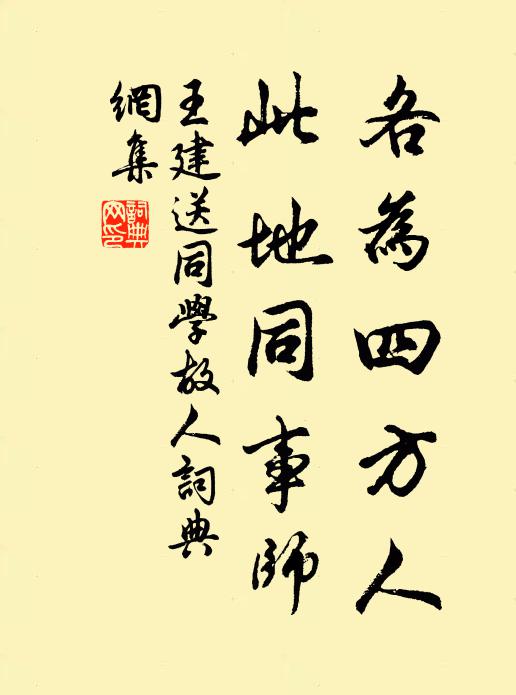 各為四方人
此地同事師
王建送同學故人詞典
網集
詞典
网印